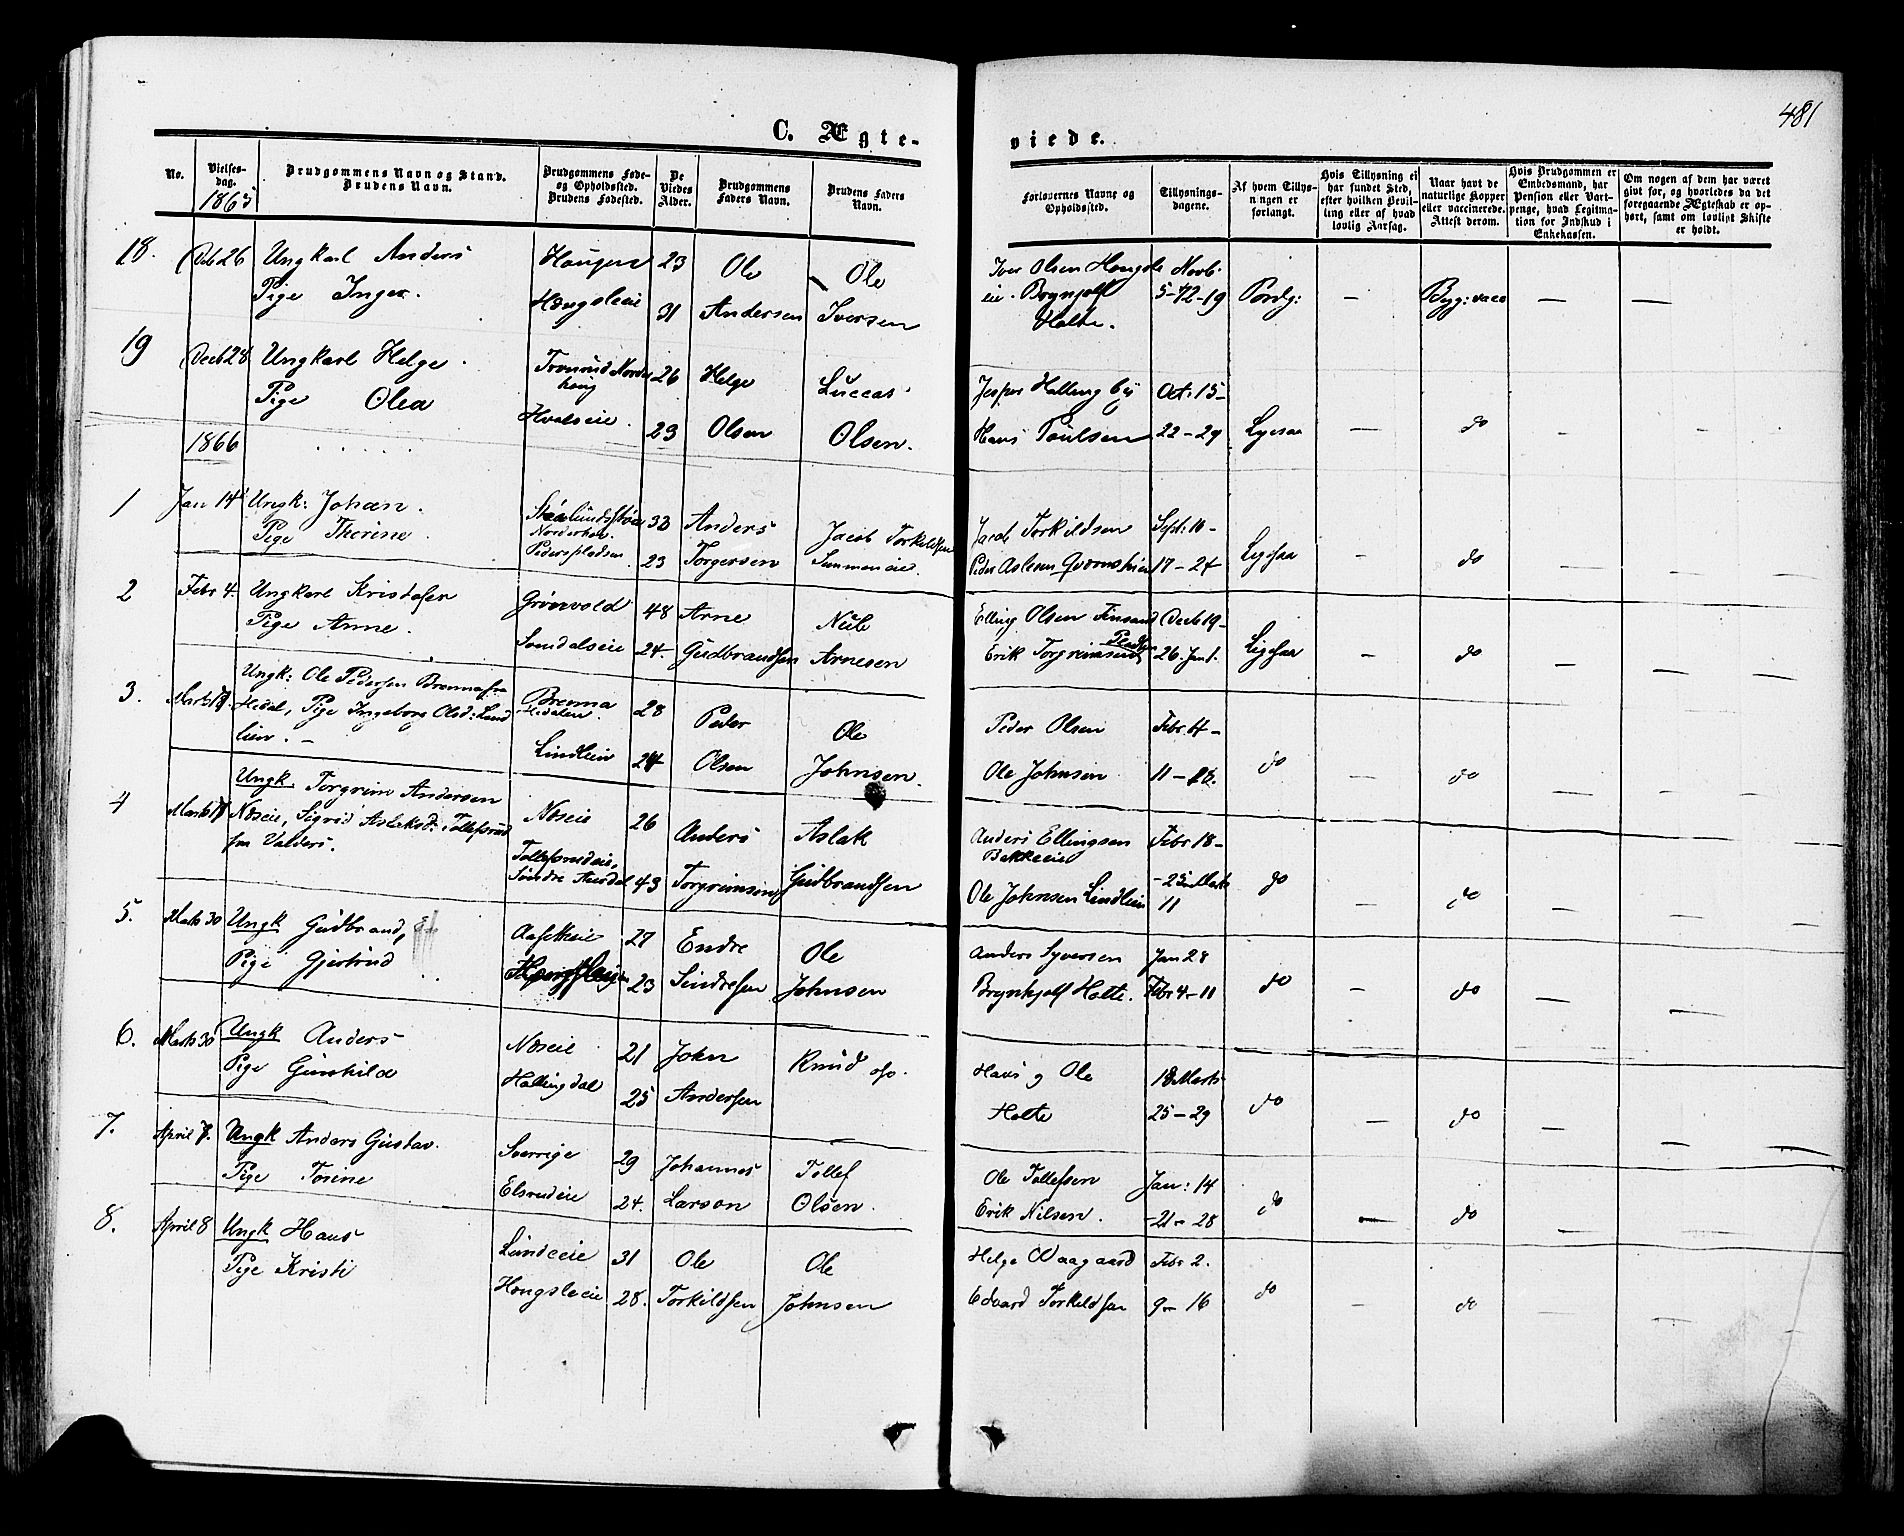 481
C. Ægte-
viede.
No.
Vielses-
dag.
1865
Brudgommens Navn og Stand.
Brudens Navn.
Brudgommens Føde-
og Opholdssted.
Brudens Fødested.
De
Viedes
Alder.
Brudgommens
Faders Navn.
Brudens Faders
Navn.
Forlovernes Navne og
Opholdssted.
Tillysnings-
dagene.
Af hvem Tillys-
ningen er
forlangt.
Hvis Tillysning ei
har fundet Sted,
efter hvilken Bevil-
ling eller af hvad
lovlig Aarsag.
Naar havt de
naturlige Kopper
eller vaccinerede.
Attest derom.
Hvis Brudgommen er
Embedsmand, har
Pension eller Vart-
penge, hvad Legitima-
tion for Indskud i
Enkekassen.
Om nogen af dem har været
gift før, og hvorledes da det
foregaaende Ægteskab er op-
hørt, samt om lovligt Skifte
er holdt.
18. Deb 26 Ungkarl Anders Haugen 23 Ole Ole Iver Olsen Hougsl Novb.
Pige Inger. Hougsleie 31 Andersen Iversen eie. Brynjolf 5-12-19 Brdg: — Begg: vacc — —
Holte.
19 Decb 28 Ungkarl Helge. Norder 26 Helge Luccas Jesper Halling by Oct. 15-
Pige Olea houg Hvalseie. 23 Olsen Olsen. Hans Poulsen 22-29 Ligesaa — do — -
1866
1 Jan 14 Ungk: Johan. 33 Anders Jacob Torkildsen Jacob Torkildsen Sept: 10-
Pige Therine. Norderhov Pederspladsen 23 Torgersen Peder Aslesen 17-24 Ligesaa — do
2 Febr 4. Ungkarl Kristofer Grønvold 48 Arne Nub Elling Olsen Finsand Decb 19-
Pige Anne. Somdalseie 24. Gudbrandsen Arnesen Erik Torgrimsen 26 Jan 1. Ligesaa — do — —
3. Marts 18. Ungk: Ole Pedersen Brenna fra
Hedal, Pige Ingeborg Olsd: Lind Brenna Hedalen. 28 Peder Ole Peder Olsen Febr 4-
lien. — Lindlien 24 Olsen Johnsen. Ole Johnsen 11-18. do — do — —
4 Marts 18 Ungk. Torgrim Andersen
Næseie, Sigrid Aslaksd: Tollefsrud Næseie 26 Anders Aslak Anders Ellingsen Febr 18-
fra Valders. Tollefsrudeie, Bakkeeie
Søndre Aurdal 43 Torgrimsen Gudbrandsen Ole Johnsen Lindlien -25 Marts 11 do — do — —
5. Marts 30 Ungk Gudbrand, 27 Endre Ole Anders Syversen Jan 28
Pige Gjertrud 23 Sindresen Johnsen Brynhjolf Holte. Febr 4-11 do — do — —
6. Marts 30 Ungk Anders Næseie 21 John Knud Hans og Ole 18 Marts
Pige Gunhild Hallingdal 25 Andersen Holte 25-29 do — do — —
7. April 8. Ungk Anders Gustav. Sverrige 29 Johannes Tollef Ole Tollefsen Jan: 14
Pige Torine Elsrudeie 24. Larson Olsen. Erik Nilsen. -21-28 do — do — —
8. April 8 Ungk Hans Lundeeie 31 Ole Ole Helge Waagaard Febr 2.
Pige Kristi Hougsleeie 28. Torkildsen Johnsen Edvard Torkildsen 9-16 do — do — —